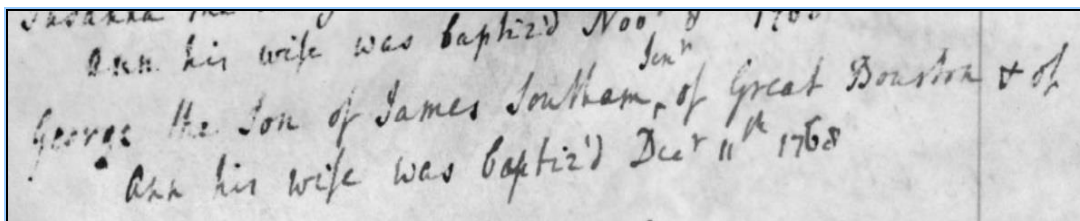 Susanna the
Ann his wife was baptiz'd Novr 8 1768
Senr
George the Son of James Southam, of Great Bourton & of
Ann his wife was baptiz'd Decr 11th 1768